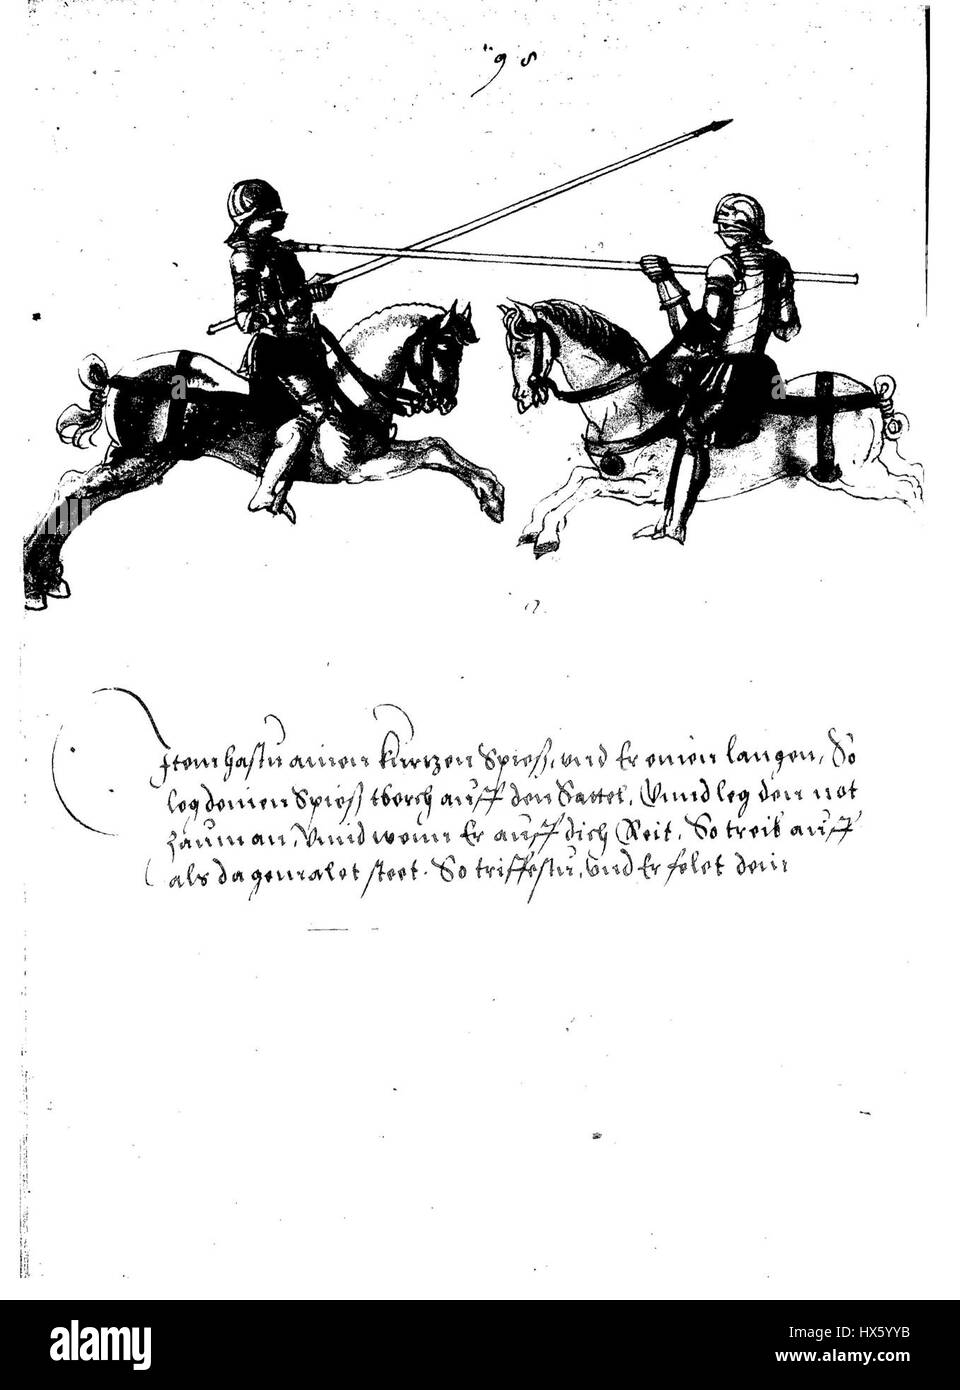 98
Item hastu ainen kurtzen Spieß, und Er einen langen, So
leg deinen Spieß tberch auff den Sattel, Unnd leg den not
zaum an, Unnd wenn Er auff dich Reit, So treib auff
als da gemalet steet. So triffestu, und Er felet dein
a
a
a
alamy
Image ID: HX5YYB
www.alamy.com